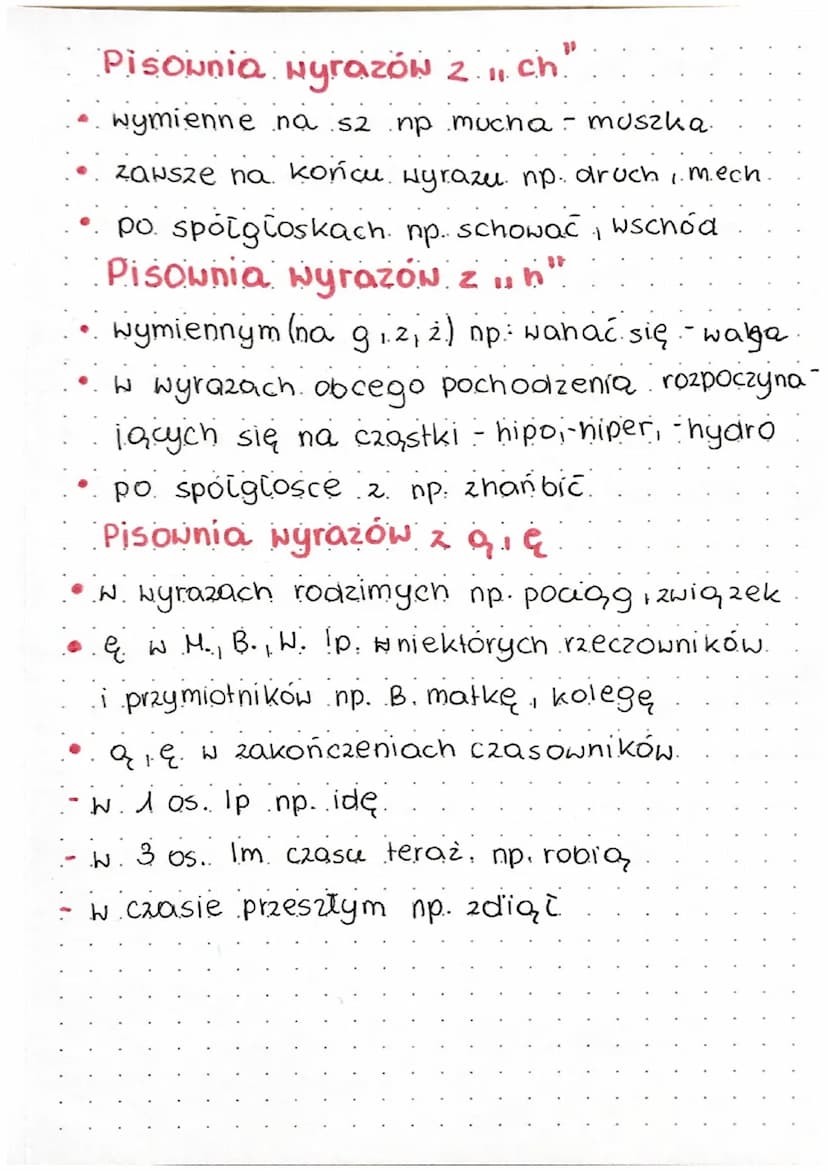 Pisownia wyrazów z „ch"
• wymienne na sz np mucha - muszka
• zawsze na końcu wyrazu np. druch, mech
• po spółgłoskach np. schować, wschód
Pisownia wyrazów z „h"
• wymiennym (na g, z, ż) np: wahać się - waga
• w wyrazach obcego pochodzenia rozpoczyna-
jących się na cząstki - hipo,-hiper, -hydro
• po spółgłosce z np. zhańbić
Pisownia wyrazów z ą, ę
• w wyrazach rodzimych np. pociąg, związek
• ę w M., B., W. lp. niektórych rzeczowników
i przymiotników np. B. matkę, kolegę
• ą, ę w zakończeniach czasowników
- w 1 os. lp np. idę
- w 3 os. lm czasu teraź. np. robią
- w czasie przeszłym np. zdiął